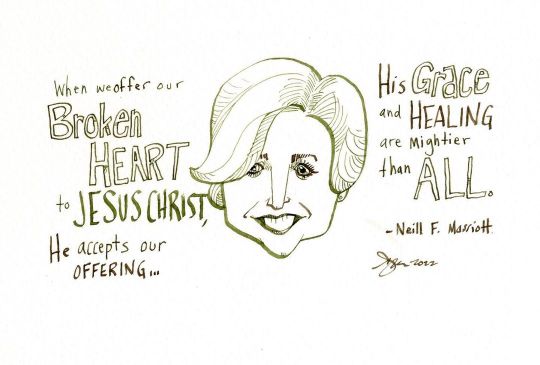 When we offer our
Broken
HEART
to JESUS CHRIST,
He accepts our
OFFERING...
His Grace
and HEALING
are mightier
than ALL.
- Neill F. Marriott
2022